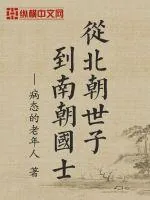 纵横中文网
從北朝世子
到南朝國士
—病态的老年人 著